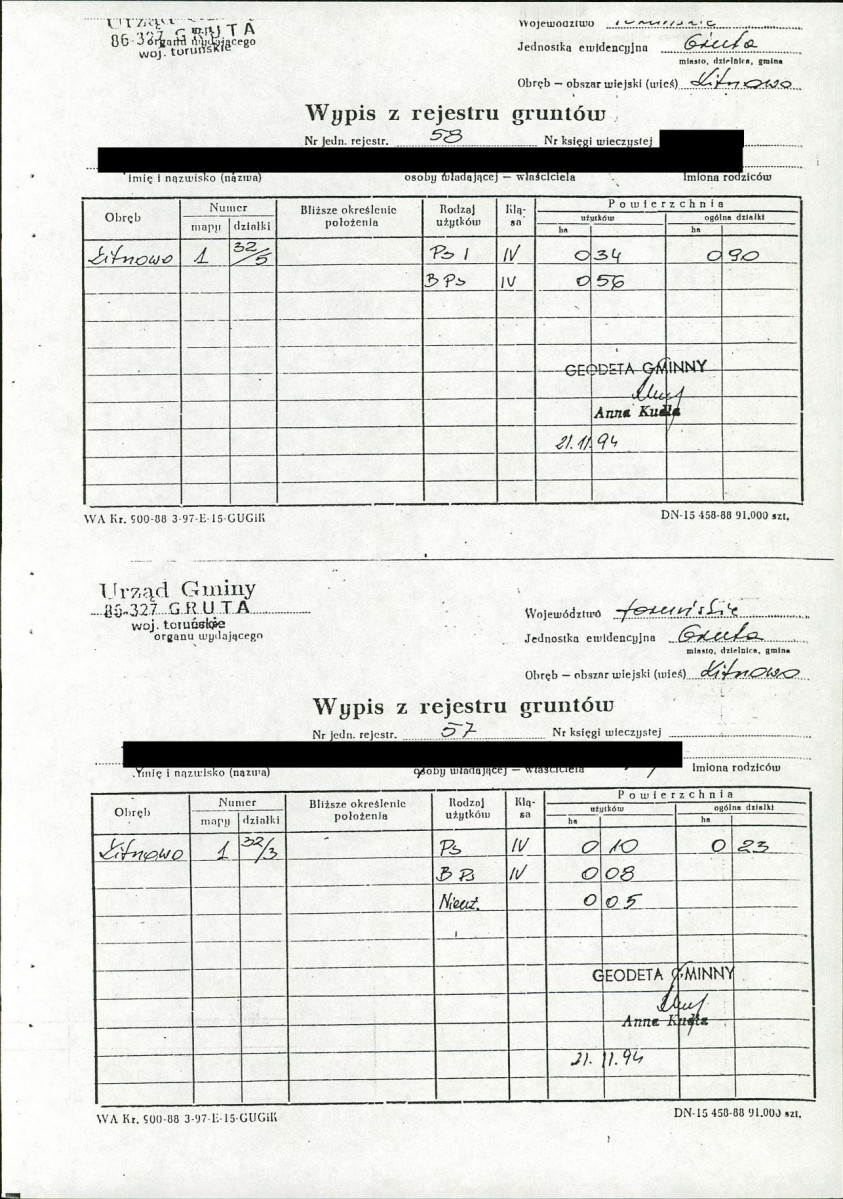 Urząd
86-327 GRUTA
organu wydającego
woj. toruńskie
Województwo
Jednostka ewidencyjna Gruta
miasto, dzielnica, gmina
Obręb – obszar wiejski (wieś) Litnowo
Wypis z rejestru gruntów
Nr jedn. rejestr. 58 Nr księgi wieczystej
imię i nazwisko (nazwa) osoby władającej – właściciela imiona rodziców
Obręb Numer Bliższe określenie położenia Rodzaj użytków Klasa Powierzchnia
mapy działki użytków ogólna działki
ha ha
Litnowo 1 32/5 Ps I IV 0 34 0 90
B Ps IV 0 56
GEODETA GMINNY
Anna Kudła
21.11.94
WA Kr. 900-88 3-97-E-15-GUGiK DN-15 458-88 91.000 szt.
Urząd Gminy
86-327 GRUTA
woj. toruńskie
organu wydającego
Województwo toruńskie
Jednostka ewidencyjna Gruta
miasto, dzielnica, gmina
Obręb – obszar wiejski (wieś) Litnowo
Wypis z rejestru gruntów
Nr jedn. rejestr. 57 Nr księgi wieczystej
imię i nazwisko (nazwa) osoby władającej – właściciela imiona rodziców
Obręb Numer Bliższe określenie położenia Rodzaj użytków Klą-sa Powierzchnia
mapy działki użytków ogólna działki
ha ha
Litnowo 1 32/3 Ps IV 0 10 0 23
B Ps IV 0 08
Nieuż. 0 05
GEODETA GMINNY
Anna Kudła
21.11.94
WA Kr. 900-88 3-97-E-15-GUGiK DN-15 458-88 91.000 szt.